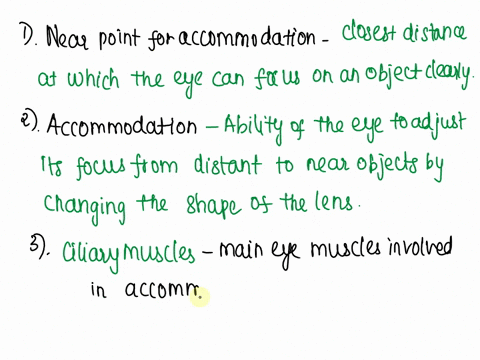 1). Near point for accommodation - closest distance
at which the eye can focus on an object clearly.
2). Accommodation - Ability of the eye to adjust
its focus from distant to near objects by
changing the shape of the lens.
3). Ciliary muscles - main eye muscles involved
in accomm